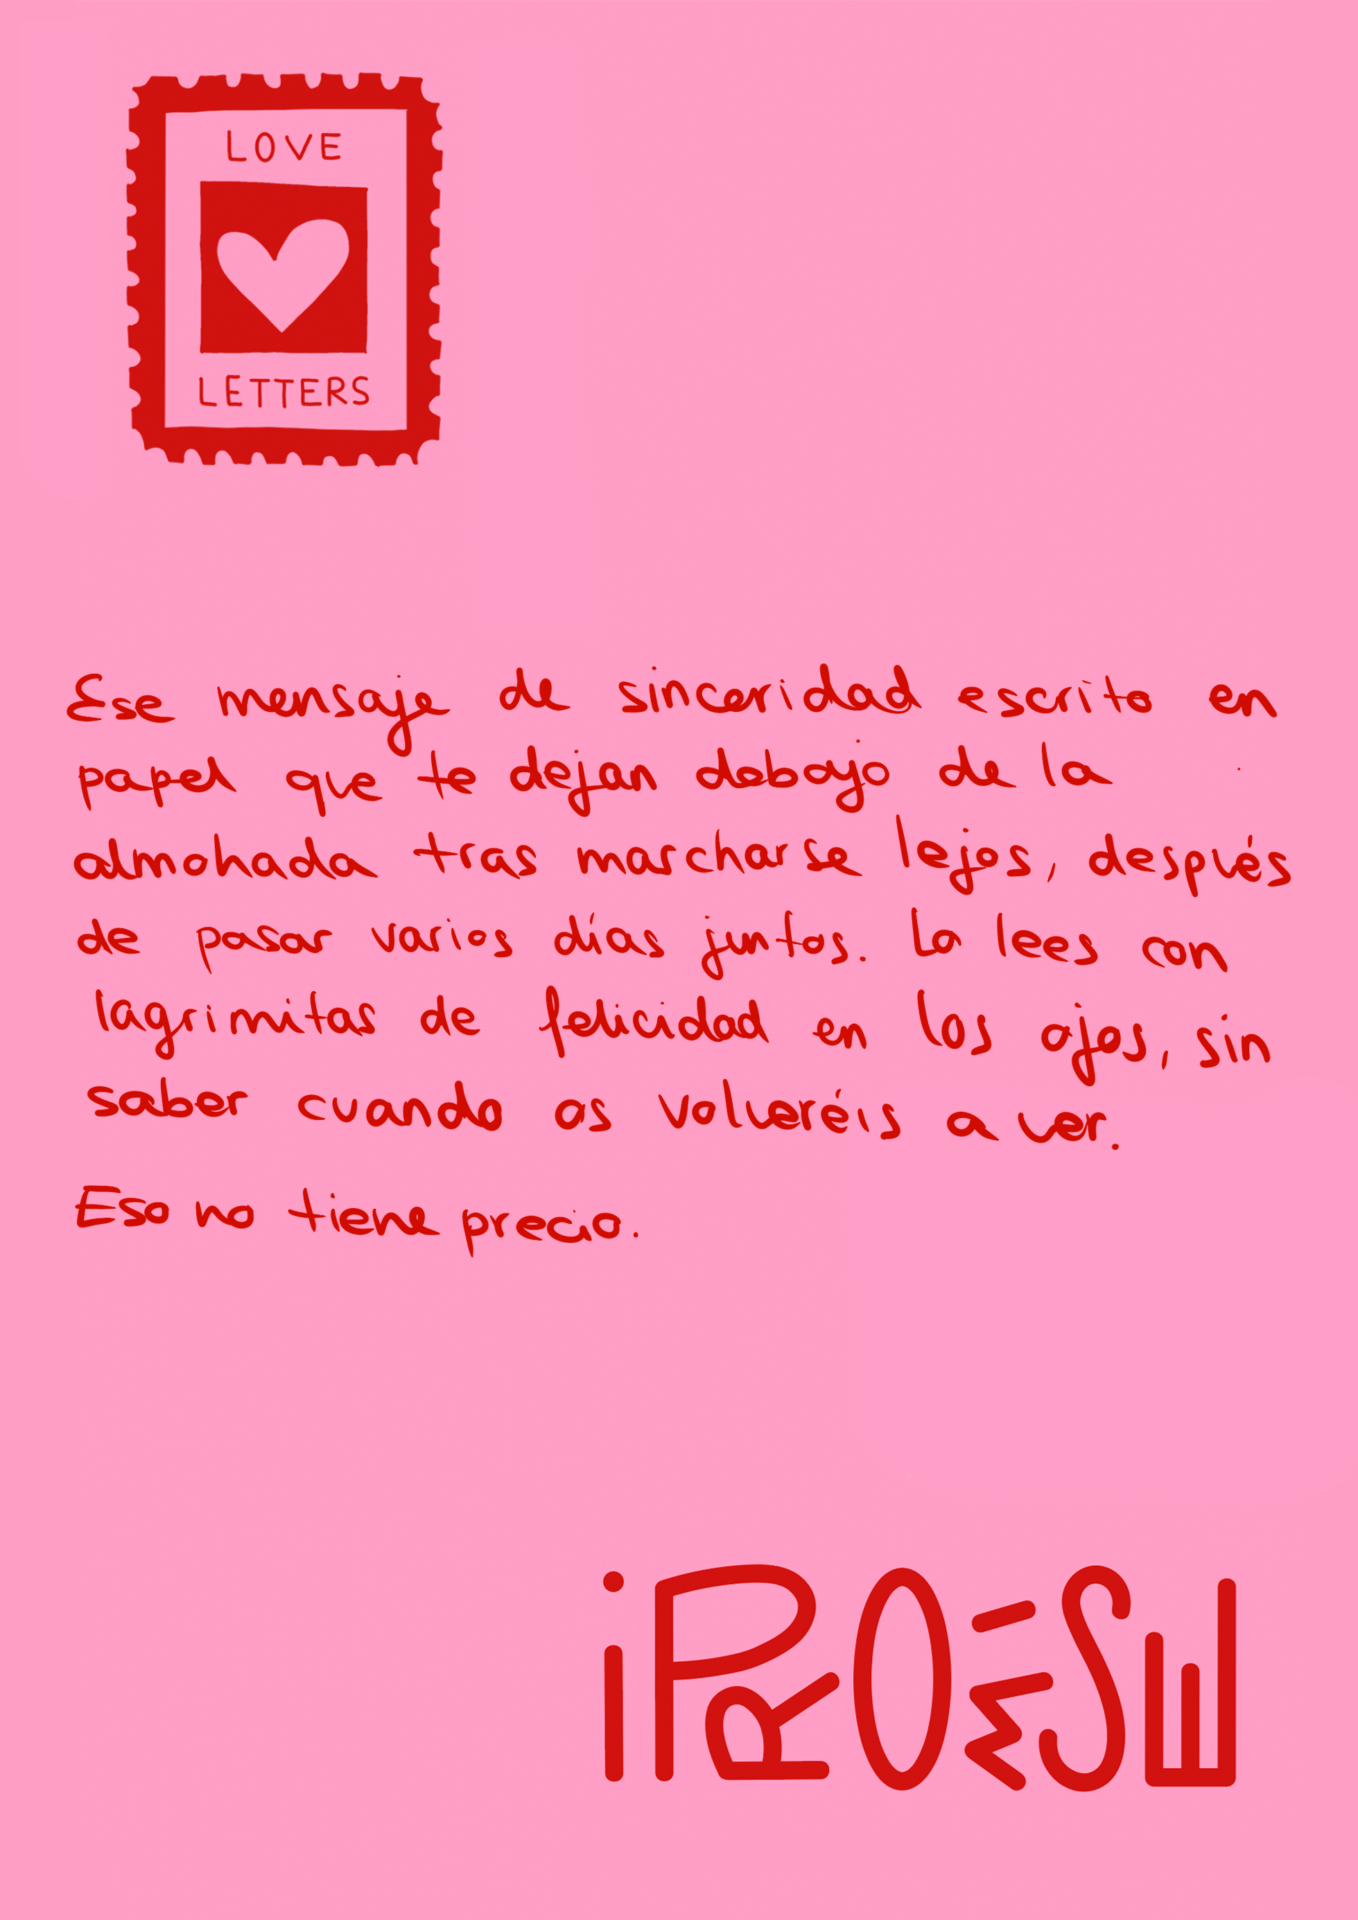 LOVE
LETTERS
Ese mensaje de sinceridad escrito en
papel que te dejan debajo de la
almohada tras marcharse lejos, después
de pasar varios días juntos. La lees con
lagrimitas de felicidad en los ojos, sin
saber cuando os volveréis a ver.
Eso no tiene precio.